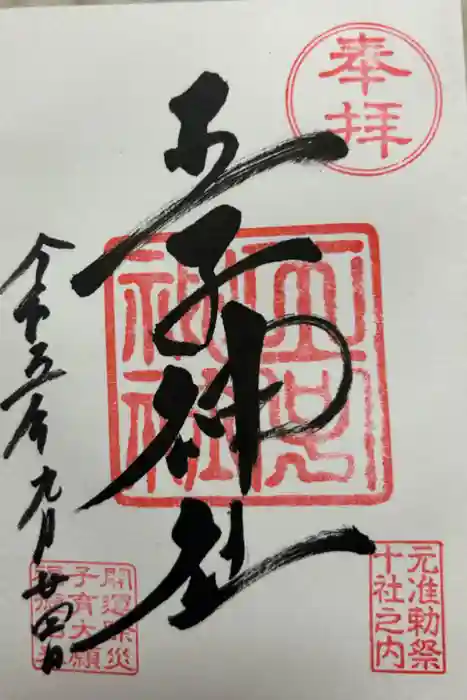 奉拝
元准勅祭
十社之内
王子神社
王子
神社
令和五年九月廿四日
開運除災
子育大願